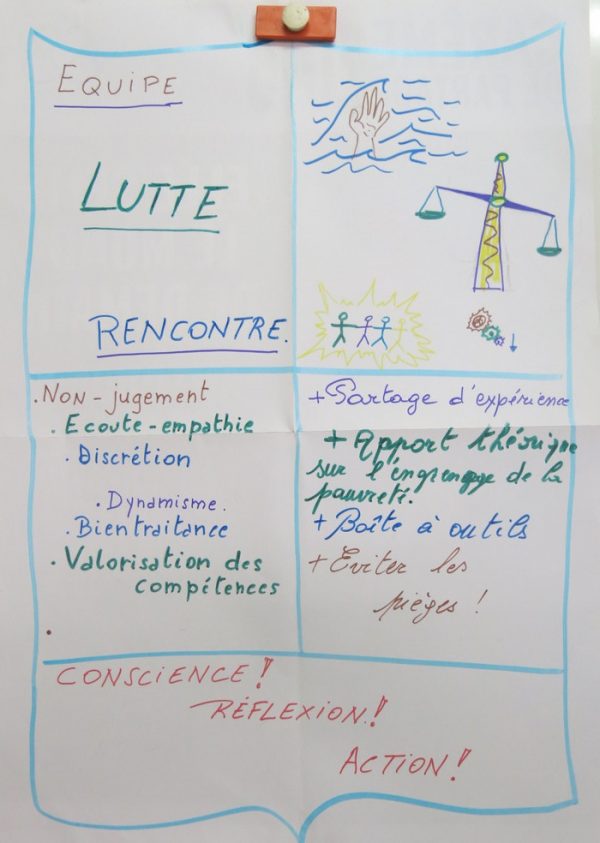 EQUIPE
LUTTE
RENCONTRE.
. Non-jugement
. Ecoute-empathie
. Discrétion
. Dynamisme.
. Bientraitance
. Valorisation des
compétences
.
+ Partage d'expérience
+ Apport théorique
sur l'engrenage de la
pauvreté.
+ Boîte à outils
+ Eviter les
pièges !
CONSCIENCE !
RÉFLEXION !
ACTION !